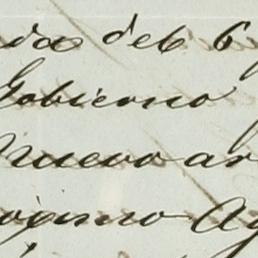 da del 6
Gobierno
Nuevo ar
oximo Ag